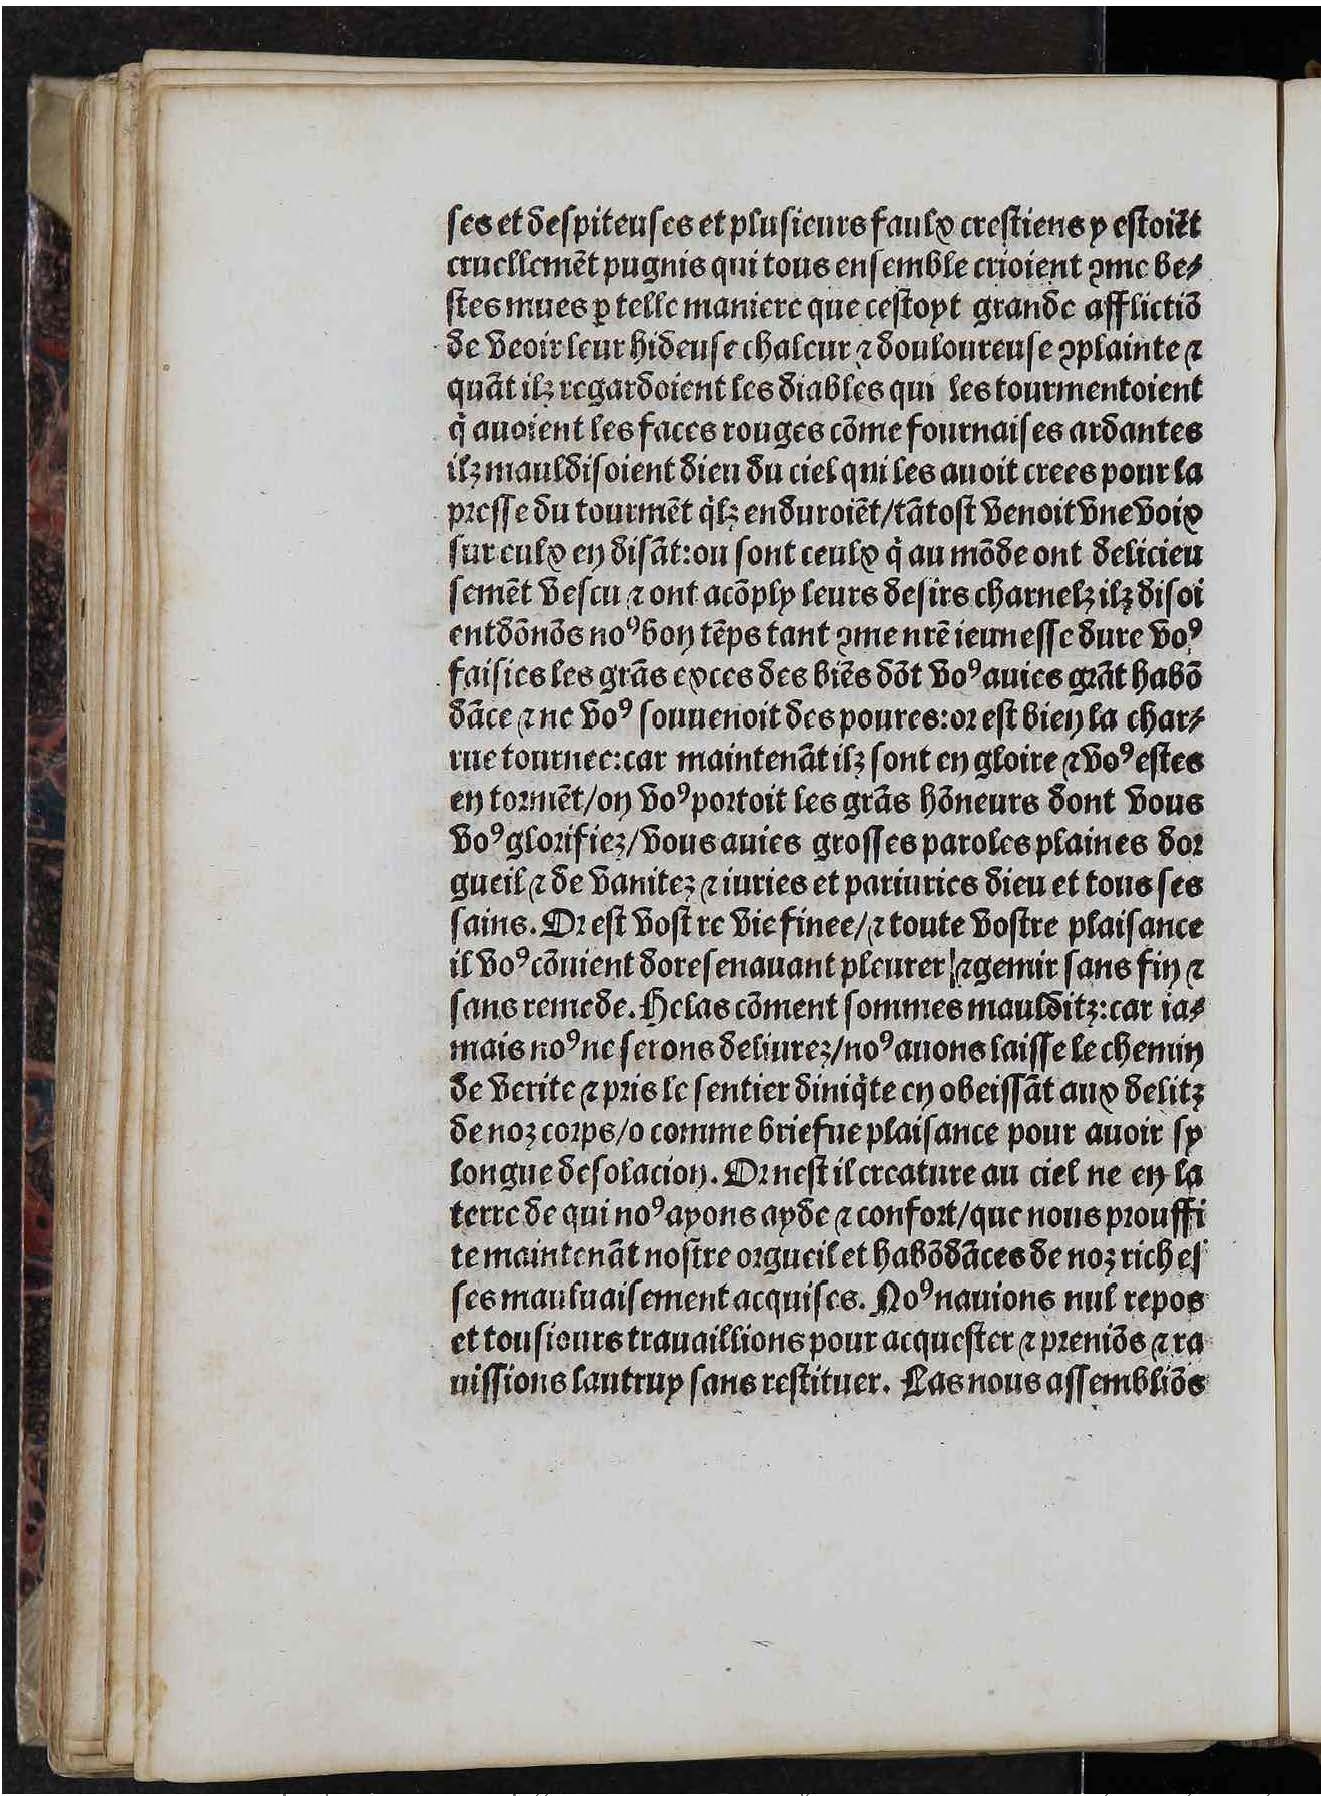 ſes et deſpiteuſes et pluſieurs faulx creſtiens y eſtoiẽt
cruellemẽt pugnis qui tous enſemble crioient ꝯme be⸗
ſtes mues ꝑ telle maniere que ceſtoyt grande afflictiõ
de veoir leur hideuſe chaleur ⁊ douloureuſe ꝯplainte ⁊
quãt ilꝫ regardoient les diables qui les tourmentoient
q̃ auoient les faces rouges cõme fournaiſes ardantes
ilꝫ mauldiſoient dieu du ciel qui les auoit crees pour la
preſſe du tourmẽt q̃lꝫ enduroiẽt/tãtoſt venoit vne voix
ſur eulx en diſãt: ou ſont ceulx q̃ au mõde ont delicieu
ſemẽt veſcu ⁊ ont acõply leurs deſirs charnelꝫ ilꝫ diſoi
ent dõnõs noꝰ bon tẽps tant ꝯme nr̃e ieuneſſe dure voꝰ
faiſies les grãs exces des biẽs dõt voꝰ auies grãt habõ
dãce ⁊ ne voꝰ ſouuenoit des poures: or eſt bien la char⸗
rue tournee: car maintenãt ilꝫ ſont en gloire ⁊ voꝰ eſtes
en tormẽt/on voꝰ portoit les grãs hõneurs dont vous
voꝰ glorifieꝫ/vous auies groſſes paroles plaines dor
gueil ⁊ de vaniteꝫ ⁊ iuries et pariuries dieu et tous ſes
ſains. Or eſt voſtre vie finee/⁊ toute voſtre plaiſance
il voꝰ cõuient doreſenauant pleurer ⁊ gemir ſans fin ⁊
ſans remede. Helas cõment ſommes maulditꝫ: car ia⸗
mais noꝰ ne ſerons deliureꝫ/noꝰ auons laiſſe le chemin
de verite ⁊ pris le ſentier diniq̃te en obeiſſãt aux delitꝫ
de noꝫ corps/o comme briefue plaiſance pour auoir ſy
longue deſolacion. Or neſt il creature au ciel ne en la
terre de qui noꝰ ayons ayde ⁊ confort/que nous prouffi
te maintenãt noſtre orgueil et habõdãces de noꝫ richeſ
ſes mauluaiſement acquiſes. Noꝰ nauions nul repos
et touſiours trauaillions pour acqueſter ⁊ preniõs ⁊ ra
uiſſions lautruy ſans reſtituer. Las nous aſſembliõs